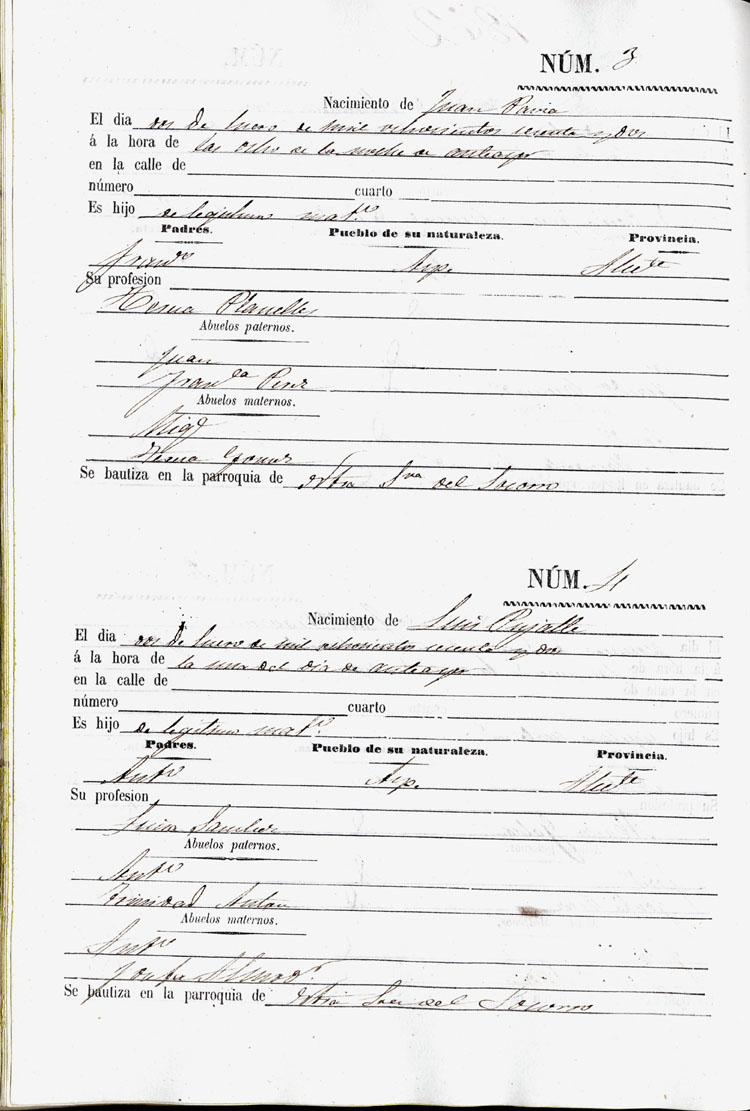 NÚM. 3
Nacimiento de Juan Pavia
El dia dos de Enero de mil ochocientos sesenta y dos
á la hora de las ocho de la noche de anteayer
en la calle de
número cuarto
Es hijo de legitimo mat.º
Padres. Pueblo de su naturaleza. Provincia.
Fran.co Asp. Alic.te
Su profesion
Teresa Planelles
Abuelos paternos.
Juan
Fran.ca Perez
Abuelos maternos.
Mig.l
Teresa Gomez
Se bautiza en la parroquia de Ntra Sra del Socorro
NÚM. 4
Nacimiento de Luis Pujalte
El dia dos de Enero de mil ochocientos sesenta y dos
á la hora de la una del dia de anteayer
en la calle de
número cuarto
Es hijo de legitimo mat.º
Padres. Pueblo de su naturaleza. Provincia.
Ant.o Asp. Alic.te
Su profesion
Luisa Sanchez
Abuelos paternos.
Ant.o
Trinidad Anton
Abuelos maternos.
Ant.o
Josefa
Se bautiza en la parroquia de Ntra Sra del Socorro